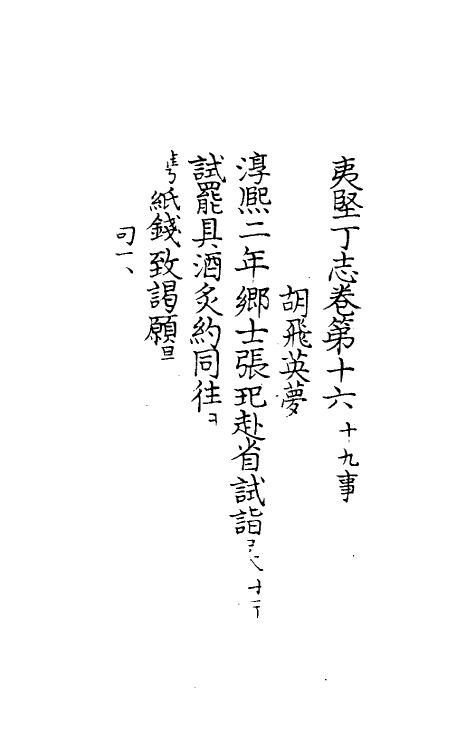 夷堅丁志卷第十六十九事
胡飛英夢
淳熙二年鄉士張玘赴省試詣
試罷具酒炙約同往
紙錢致謁願